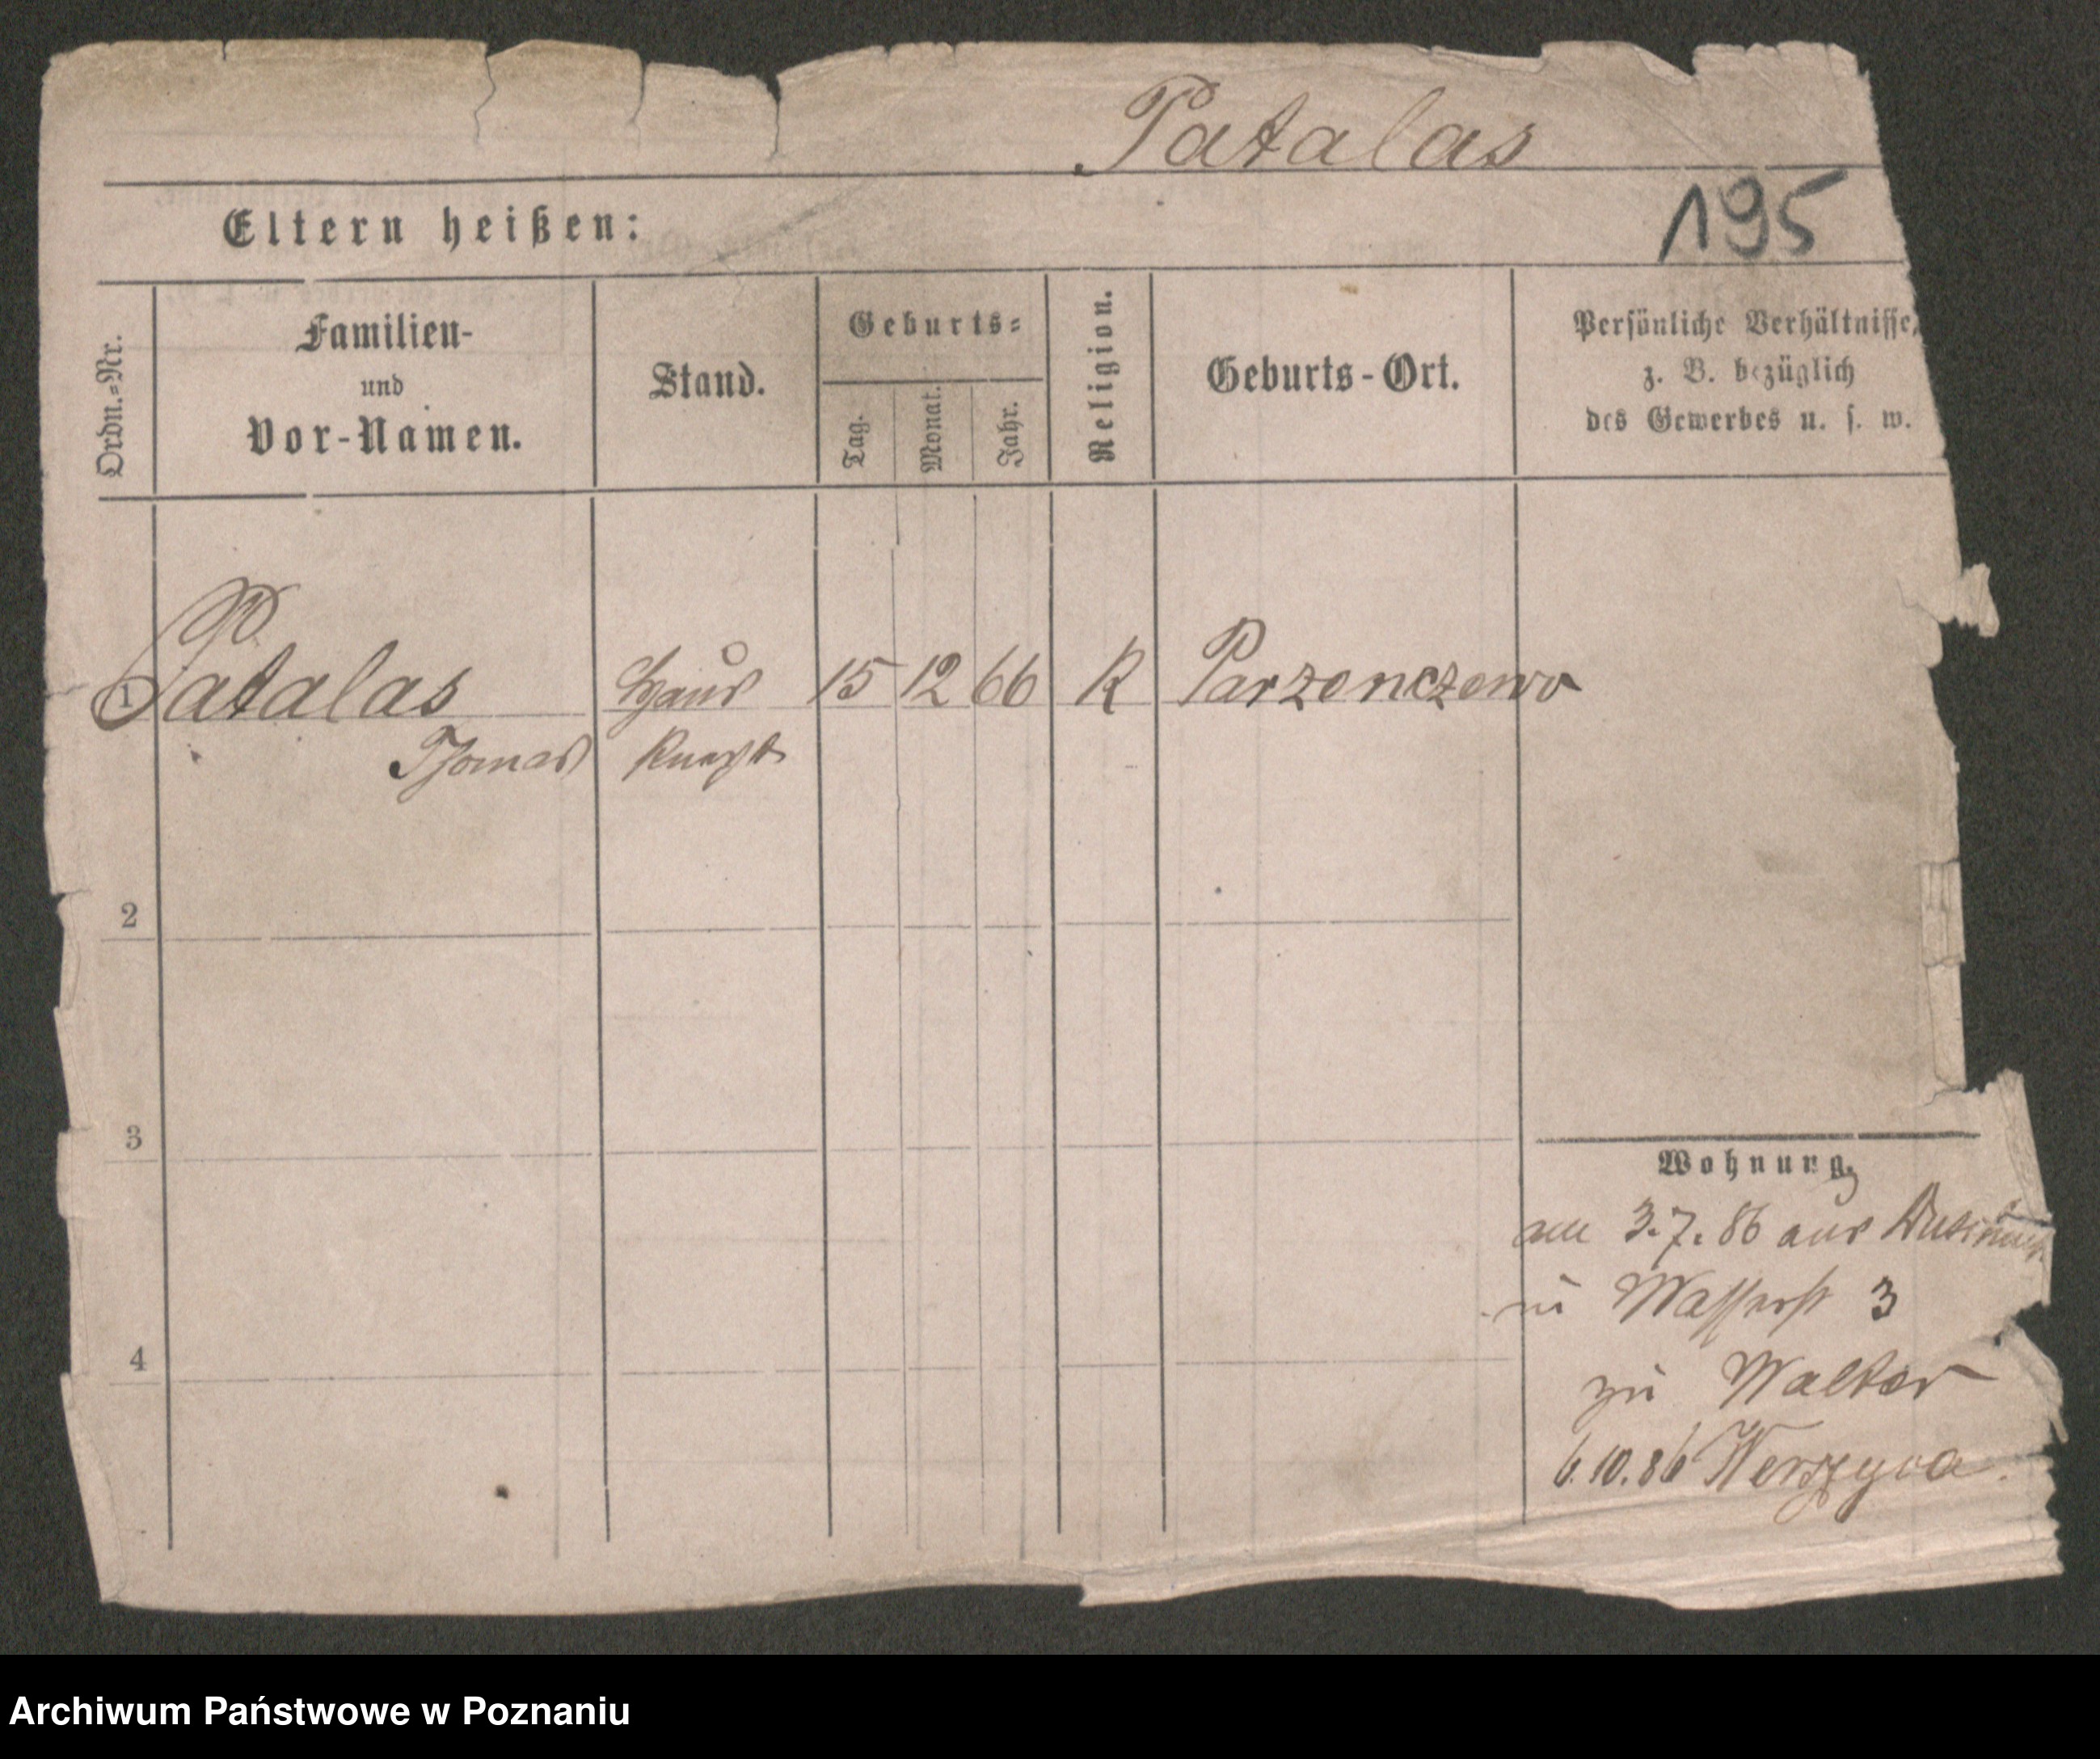 Patalas
195
Eltern heißen:
Ordn.=Nr.
Familien-
und
Vor-Namen.
Stand.
Geburts=
Tag.
Monat.
Jahr.
Religion.
Geburts-Ort.
Persönliche Verhältnisse,
z. B. bezüglich
des Gewerbes u. s. w.
1 Patalas Haus 15 12 66 R Parzenczewo
Thomas Knecht
2
3
4
Wohnung.
am 3.7.86 aus
in Wasserst 3
zu Walter
6.10.86
Archiwum Państwowe w Poznaniu